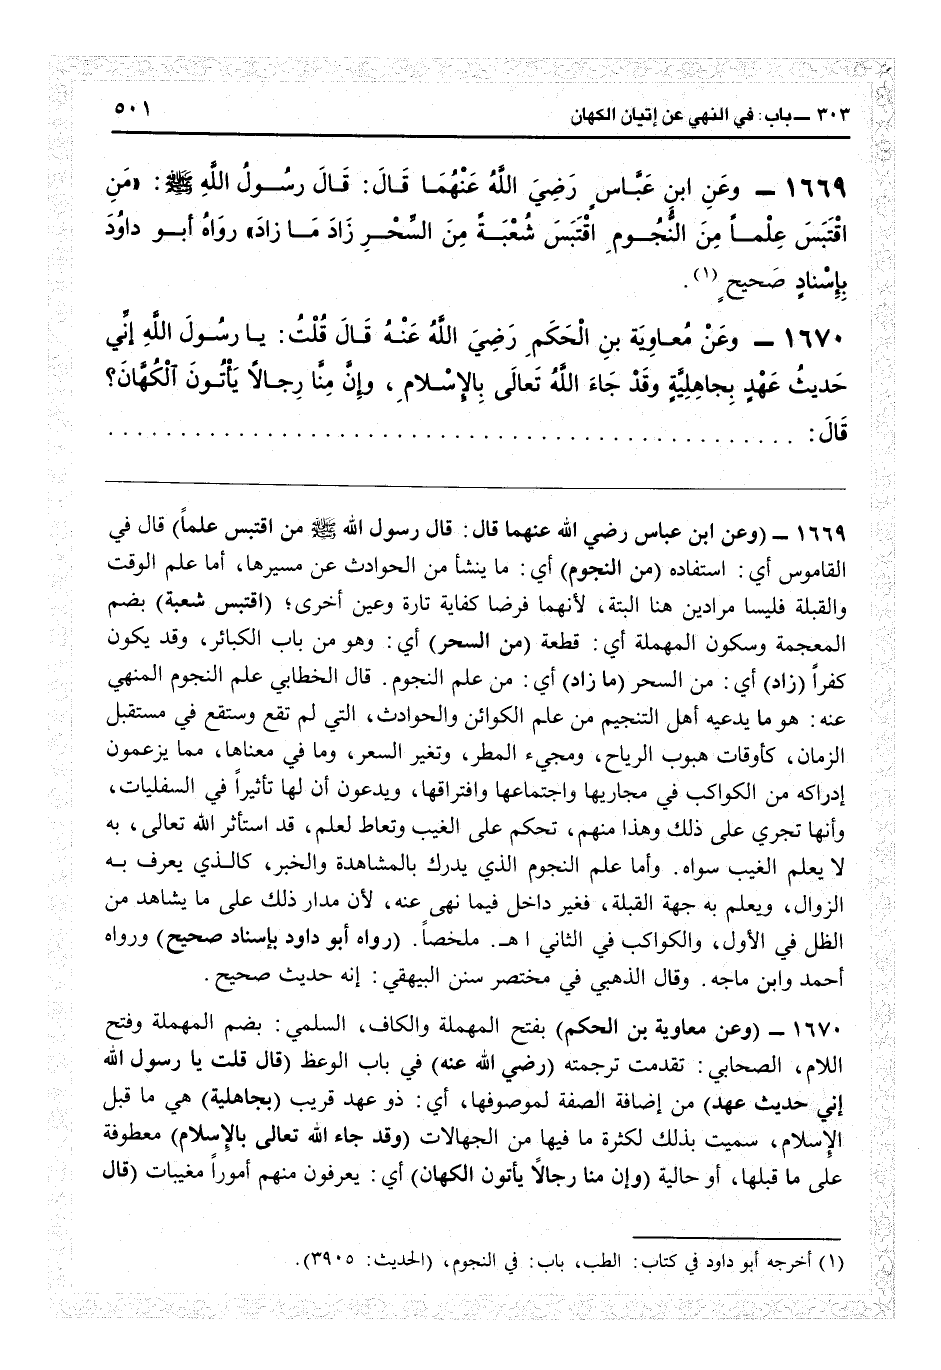 ٣٠٣ ــ باب: في النهي عن إتيان الكهان ٥٠١
١٦٦٩ ــ وعَنِ ابنِ عَبَّاسٍ رَضِيَ اللَّهُ عَنْهُمَا قَالَ: قَالَ رسُولُ اللَّهِ ﷺ: «مَنِ
اقْتَبَسَ عِلْماً مِنَ النُّجُومِ اقْتَبَسَ شُعْبَةً مِنَ السِّحْرِ زَادَ مَا زادَ» رواهُ أبو داوُدَ
بِإِسْنادٍ صَحيحٍ(١).
١٦٧٠ ــ وعَنْ مُعاوِيَة بنِ الْحَكَمِ رَضِيَ اللَّهُ عَنْهُ قَالَ قُلْتُ: يا رسُولَ اللَّهِ إنِّي
حَديثُ عَهْدٍ بِجاهِلِيَّةٍ وقَدْ جَاءَ اللَّهُ تَعالَى بِالإسْلامِ، وإنَّ مِنَّا رِجالاً يَأْتُونَ ٱلْكُهَّانَ؟
قَالَ: . . . . . . . . . . . . . . . . . . . . . . . . . . . . . . . . . . . . . . . . . . . . . . . .
١٦٦٩ ــ (وعن ابن عباس رضي الله عنهما قال: قال رسول الله ﷺ من اقتبس علماً) قال في
القاموس أي: استفاده (من النجوم) أي: ما ينشأ من الحوادث عن مسيرها، أما علم الوقت
والقبلة فليسا مرادين هنا البتة، لأنهما فرضا كفاية تارة وعين أخرى؛ (اقتبس شعبة) بضم
المعجمة وسكون المهملة أي: قطعة (من السحر) أي: وهو من باب الكبائر، وقد يكون
كفراً (زاد) أي: من السحر (ما زاد) أي: من علم النجوم. قال الخطابي علم النجوم المنهي
عنه: هو ما يدعيه أهل التنجيم من علم الكوائن والحوادث، التي لم تقع وستقع في مستقبل
الزمان، كأوقات هبوب الرياح، ومجيء المطر، وتغير السعر، وما في معناها، مما يزعمون
إدراكه من الكواكب في مجاريها واجتماعها وافتراقها، ويدعون أن لها تأثيراً في السفليات،
وأنها تجري على ذلك وهذا منهم، تحكم على الغيب وتعاط لعلم، قد استأثر الله تعالى، به
لا يعلم الغيب سواه. وأما علم النجوم الذي يدرك بالمشاهدة والخبر، كالذي يعرف به
الزوال، ويعلم به جهة القبلة، فغير داخل فيما نهى عنه، لأن مدار ذلك على ما يشاهد من
الظل في الأول، والكواكب في الثاني اهـ. ملخصاً. (رواه أبو داود بإسناد صحيح) ورواه
أحمد وابن ماجه. وقال الذهبي في مختصر سنن البيهقي: إنه حديث صحيح.
١٦٧٠ ــ (وعن معاوية بن الحكم) بفتح المهملة والكاف، السلمي: بضم المهملة وفتح
اللام، الصحابي: تقدمت ترجمته (رضي الله عنه) في باب الوعظ (قال قلت يا رسول الله
إني حديث عهد) من إضافة الصفة لموصوفها، أي: ذو عهد قريب (بجاهلية) هي ما قبل
الإسلام، سميت بذلك لكثرة ما فيها من الجهالات (وقد جاء الله تعالى بالإسلام) معطوفة
على ما قبلها، أو حالية (وإن منا رجالاً يأتون الكهان) أي: يعرفون منهم أموراً مغيبات (قال
(١) أخرجه أبو داود في كتاب: الطب، باب: في النجوم، (الحديث: ٣٩٠٥).